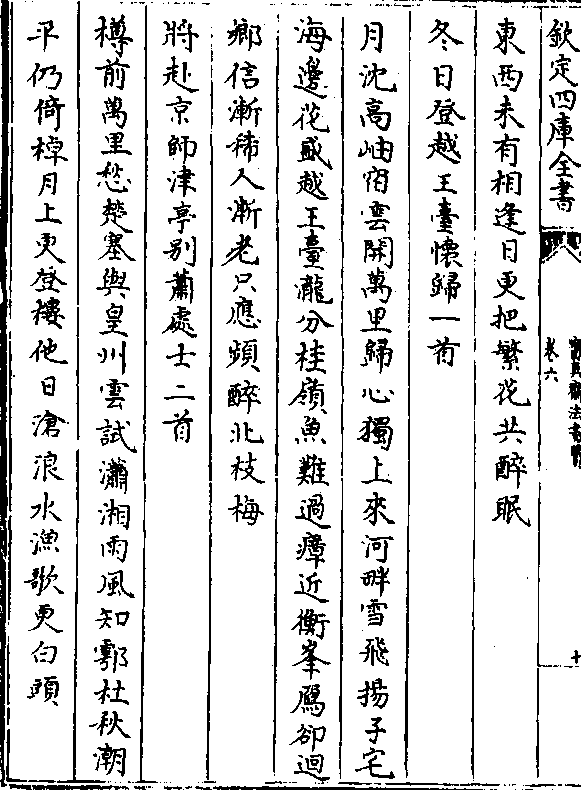 欽定四庫全書
卷六
十
東西未有相逢日更把繁花共醉眠
冬日登越王臺懷歸一首
月沈高岫宿雲開萬里歸心獨上來河畔雪飛揚子宅
海邊花盛越王臺瀧分桂嶺魚難過瘴近衡峯鴈卻迴
鄉信漸稀人漸老只應頻醉北枝梅
將赴京師津亭别蕭處士二首
樽前萬里愁楚塞與皇州雲試瀟湘雨風知鄠杜秋潮
平仍倚棹月上更登樓他日滄浪水漁歌更白頭